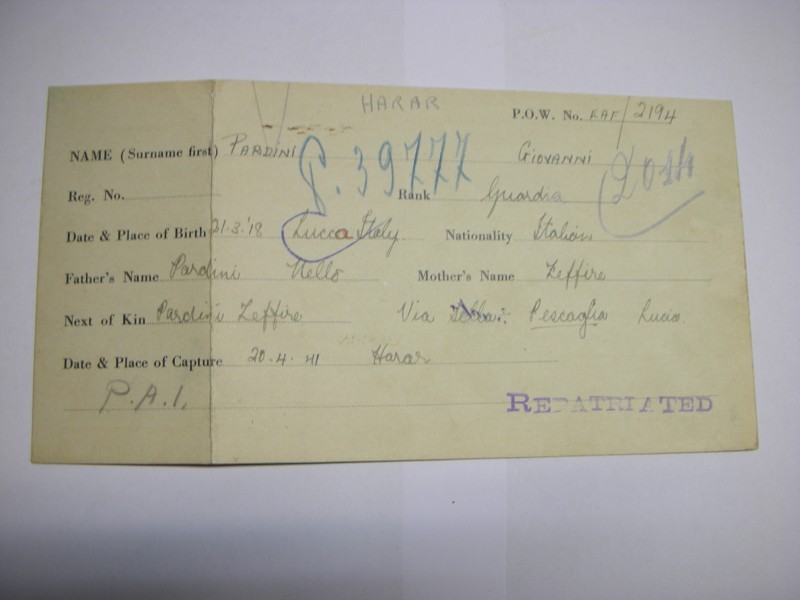 HARAR
P.O.W. No. EAF/2194
NAME (Surname first) PARDINI GIOVANNI
P.39777
Reg. No. Rank Guardia
Date & Place of Birth 21-3-'18 Lucca Italy Nationality Italian
Father's Name Pardini Nello Mother's Name Zeffire
Next of Kin Pardini Zeffire Via Pescaglia Lucca
Date & Place of Capture 20-4-41 Harar
P.A.I.
REPATRIATED